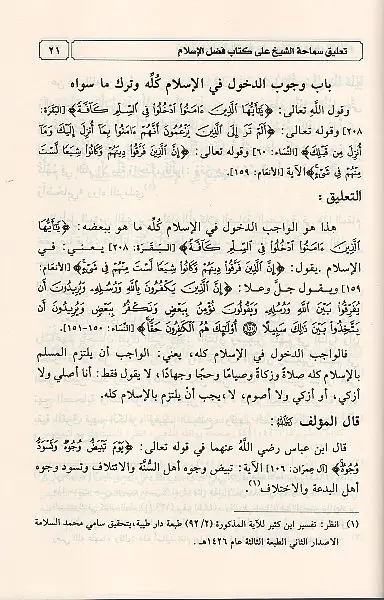 تعليق سماحة الشيخ على كتاب فضل الإسلام
٢١
باب وجوب الدخول في الإسلام كُلِّه وترك ما سواه
وقول اللَّه تعالى: ﴿يَٰٓأَيُّهَا ٱلَّذِينَ ءَامَنُوا۟ ٱدْخُلُوا۟ فِى ٱلسِّلْمِ كَآفَّةً﴾ [البَقَرَة:
٢٠٨] وقوله تعالى: ﴿أَلَمْ تَرَ إِلَى ٱلَّذِينَ يَزْعُمُونَ أَنَّهُمْ ءَامَنُوا۟ بِمَآ أُنزِلَ إِلَيْكَ وَمَآ
أُنزِلَ مِن قَبْلِكَ﴾ [النِّسَاء: ٦٠] وقوله تعالى: ﴿إِنَّ ٱلَّذِينَ فَرَّقُوا۟ دِينَهُمْ وَكَانُوا۟ شِيَعًا لَّسْتَ
مِنْهُمْ فِى شَىْءٍ﴾ الآية [الأنعَام: ١٥٩].
التعليق :
هذا هو الواجب الدخول في الإسلام كُلِّه ما هو ببعضه: ﴿يَٰٓأَيُّهَا
ٱلَّذِينَ ءَامَنُوا۟ ٱدْخُلُوا۟ فِى ٱلسِّلْمِ كَآفَّةً﴾ [البَقَرَة: ٢٠٨] يعني: في
الإسلام .يقول: ﴿إِنَّ ٱلَّذِينَ فَرَّقُوا۟ دِينَهُمْ وَكَانُوا۟ شِيَعًا لَّسْتَ مِنْهُمْ فِى شَىْءٍ﴾ [الأنعَام:
١٥٩] ويقول جلَّ وعلا: ﴿إِنَّ ٱلَّذِينَ يَكْفُرُونَ بِٱللَّهِ وَرُسُلِهِۦ وَيُرِيدُونَ أَن
يُفَرِّقُوا۟ بَيْنَ ٱللَّهِ وَرُسُلِهِۦ وَيَقُولُونَ نُؤْمِنُ بِبَعْضٍ وَنَكْفُرُ بِبَعْضٍ وَيُرِيدُونَ أَن
يَتَّخِذُوا۟ بَيْنَ ذَٰلِكَ سَبِيلًا ۝١٥٠ أُو۟لَٰٓئِكَ هُمُ ٱلْكَٰفِرُونَ حَقًّا﴾ [النِّسَاء: ١٥٠-١٥١].
فالواجب الدخول في الإسلام كله، يعني: الواجب أن يلتزم المسلم
بالإسلام كله صلاةً وزكاةً وصيامًا وحجا وجهادًا، لا يقول فقط: أنا أصلي ولا
أزكي، أو أزكي ولا أصوم، لا،يجب أن يلتزم بالإسلام كله.
قال المؤلف رَحِمَهُ اللَّهُ :
قال ابن عباس رضي اللَّهُ عنهما في قوله تعالى: ﴿يَوْمَ تَبْيَضُّ وُجُوهٌ وَتَسْوَدُّ
وُجُوهٌ﴾ [آل عِمرَان: ١٠٦] الآية: تبيض وجوه أهل السُّنَّة والائتلاف وتسود وجوه
أهل البدعة والاختلاف(١).
(١) انظر: تفسير ابن كثير للآية المذكورة (٢/٩٢) طبعة دار طيبة،بتحقيق سامي محمد السلامة
الاصدار الثاني الطبعة الثالثة عام ١٤٢٦هـ .